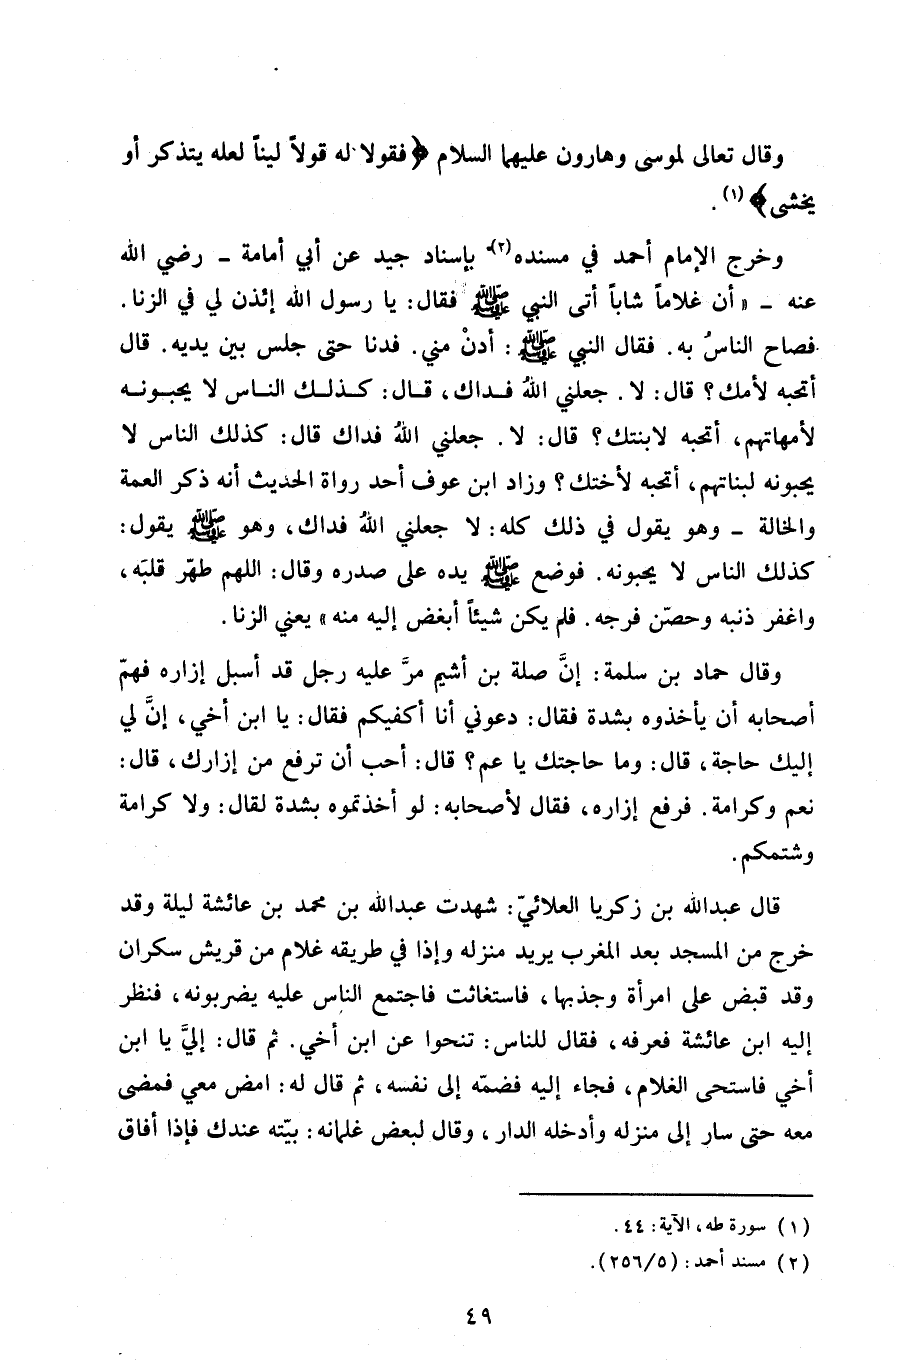 وقال تعالى لموسى وهارون عليهما السلام ﴿فقولا له قولاً ليناً لعله يتذكر أو
يخشى﴾(١) .
وخرج الإمام أحمد في مسنده(٢) بإسناد جيد عن أبي أمامة ـ رضي الله
عنه ـ « أن غلاماً شاباً أتى النبي ﷺ فقال: يا رسول الله إئذن لي في الزنا.
فصاح الناسُ به. فقال النبي ﷺ: أدنْ مني. فدنا حتى جلس بين يديه. قال
أتحبه لأمك؟ قال: لا. جعلني اللهُ فداك، قال: كذلك الناس لا يحبونه
لأمهاتهم، أتحبه لابنتك؟ قال: لا. جعلني اللهُ فداك قال: كذلك الناس لا
يحبونه لبناتهم، أتحبه لأختك؟ وزاد ابن عوف أحد رواة الحديث أنه ذكر العمة
والخالة ـ وهو يقول في ذلك كله: لا جعلني اللهُ فداك، وهو ﷺ يقول:
كذلك الناس لا يحبونه. فوضع ﷺ يده على صدره وقال: اللهم طهّر قلبَه،
واغفر ذنبه وحصّن فرجه. فلم يكن شيئاً أبغض إليه منه » يعني الزنا.
وقال حماد بن سلمة: إنَّ صلة بن أشيم مرَّ عليه رجل قد أسبل إزاره فهمّ
أصحابه أن يأخذوه بشدة فقال: دعوني أنا أكفيكم فقال: يا ابن أخي، إنَّ لي
إليك حاجة، قال: وما حاجتك يا عم؟ قال: أحب أن ترفع من إزارك، قال:
نعم وكرامة. فرفع إزاره، فقال لأصحابه: لو أخذتموه بشدة لقال: ولا كرامة
وشتمكم.
قال عبدالله بن زكريا العلائيّ: شهدت عبدالله بن محمد بن عائشة ليلة وقد
خرج من المسجد بعد المغرب يريد منزله وإذا في طريقه غلام من قريش سكران
وقد قبض على امرأة وجذبها، فاستغاثت فاجتمع الناس عليه يضربونه، فنظر
إليه ابن عائشة فعرفه، فقال للناس: تنحوا عن ابن أخي. ثم قال: إليَّ يا ابن
أخي فاستحى الغلام، فجاء إليه فضمّه إلى نفسه، ثم قال له: امض معي فمضى
معه حتى سار إلى منزله وأدخله الدار، وقال لبعض غلمانه: بيّته عندك فإذا أفاق
(١) سورة طه، الآية: ٤٤.
(٢) مسند أحمد: (٢٥٦/٥).
٤٩